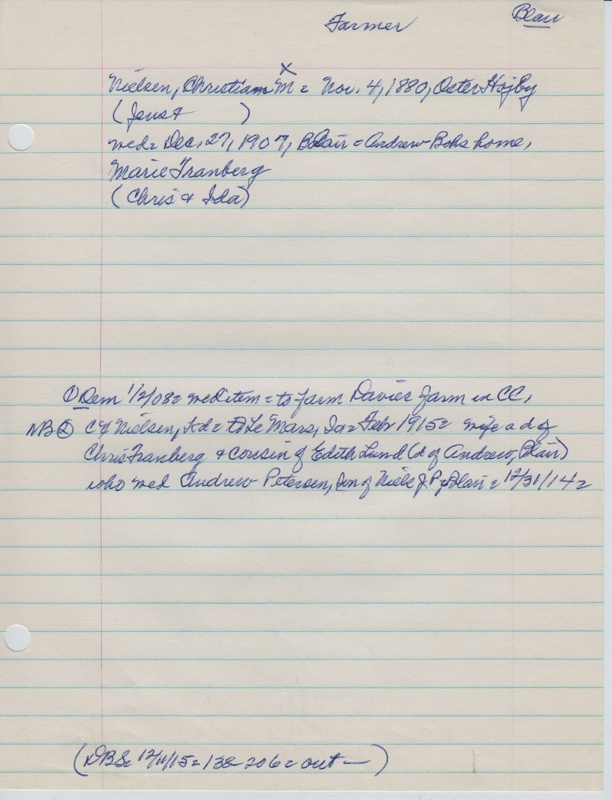 Farmer
Blair
x
Nielsen, Christian M = Nov. 4, 1880, Oster Hojby
(Jens &        )
wed = Dec. 27, 1907, Blair = Andrew Bohs home,
Marie Franberg
(Chris & Ida)
① Dem 1/2/08 = wed item = to farm Davies farm in CC,
NB ② C & Nielsen, = to Le Mars, Ia = Feb 1915 = wife a d of
Chris Franberg & cousin of Edith Lund (d of Andrew, Blair)
who wed Andrew Petersen, son of Niels J. P of Blair = 12/31/14 =
(DBS = 12/11/15 = 138-206 = out —)